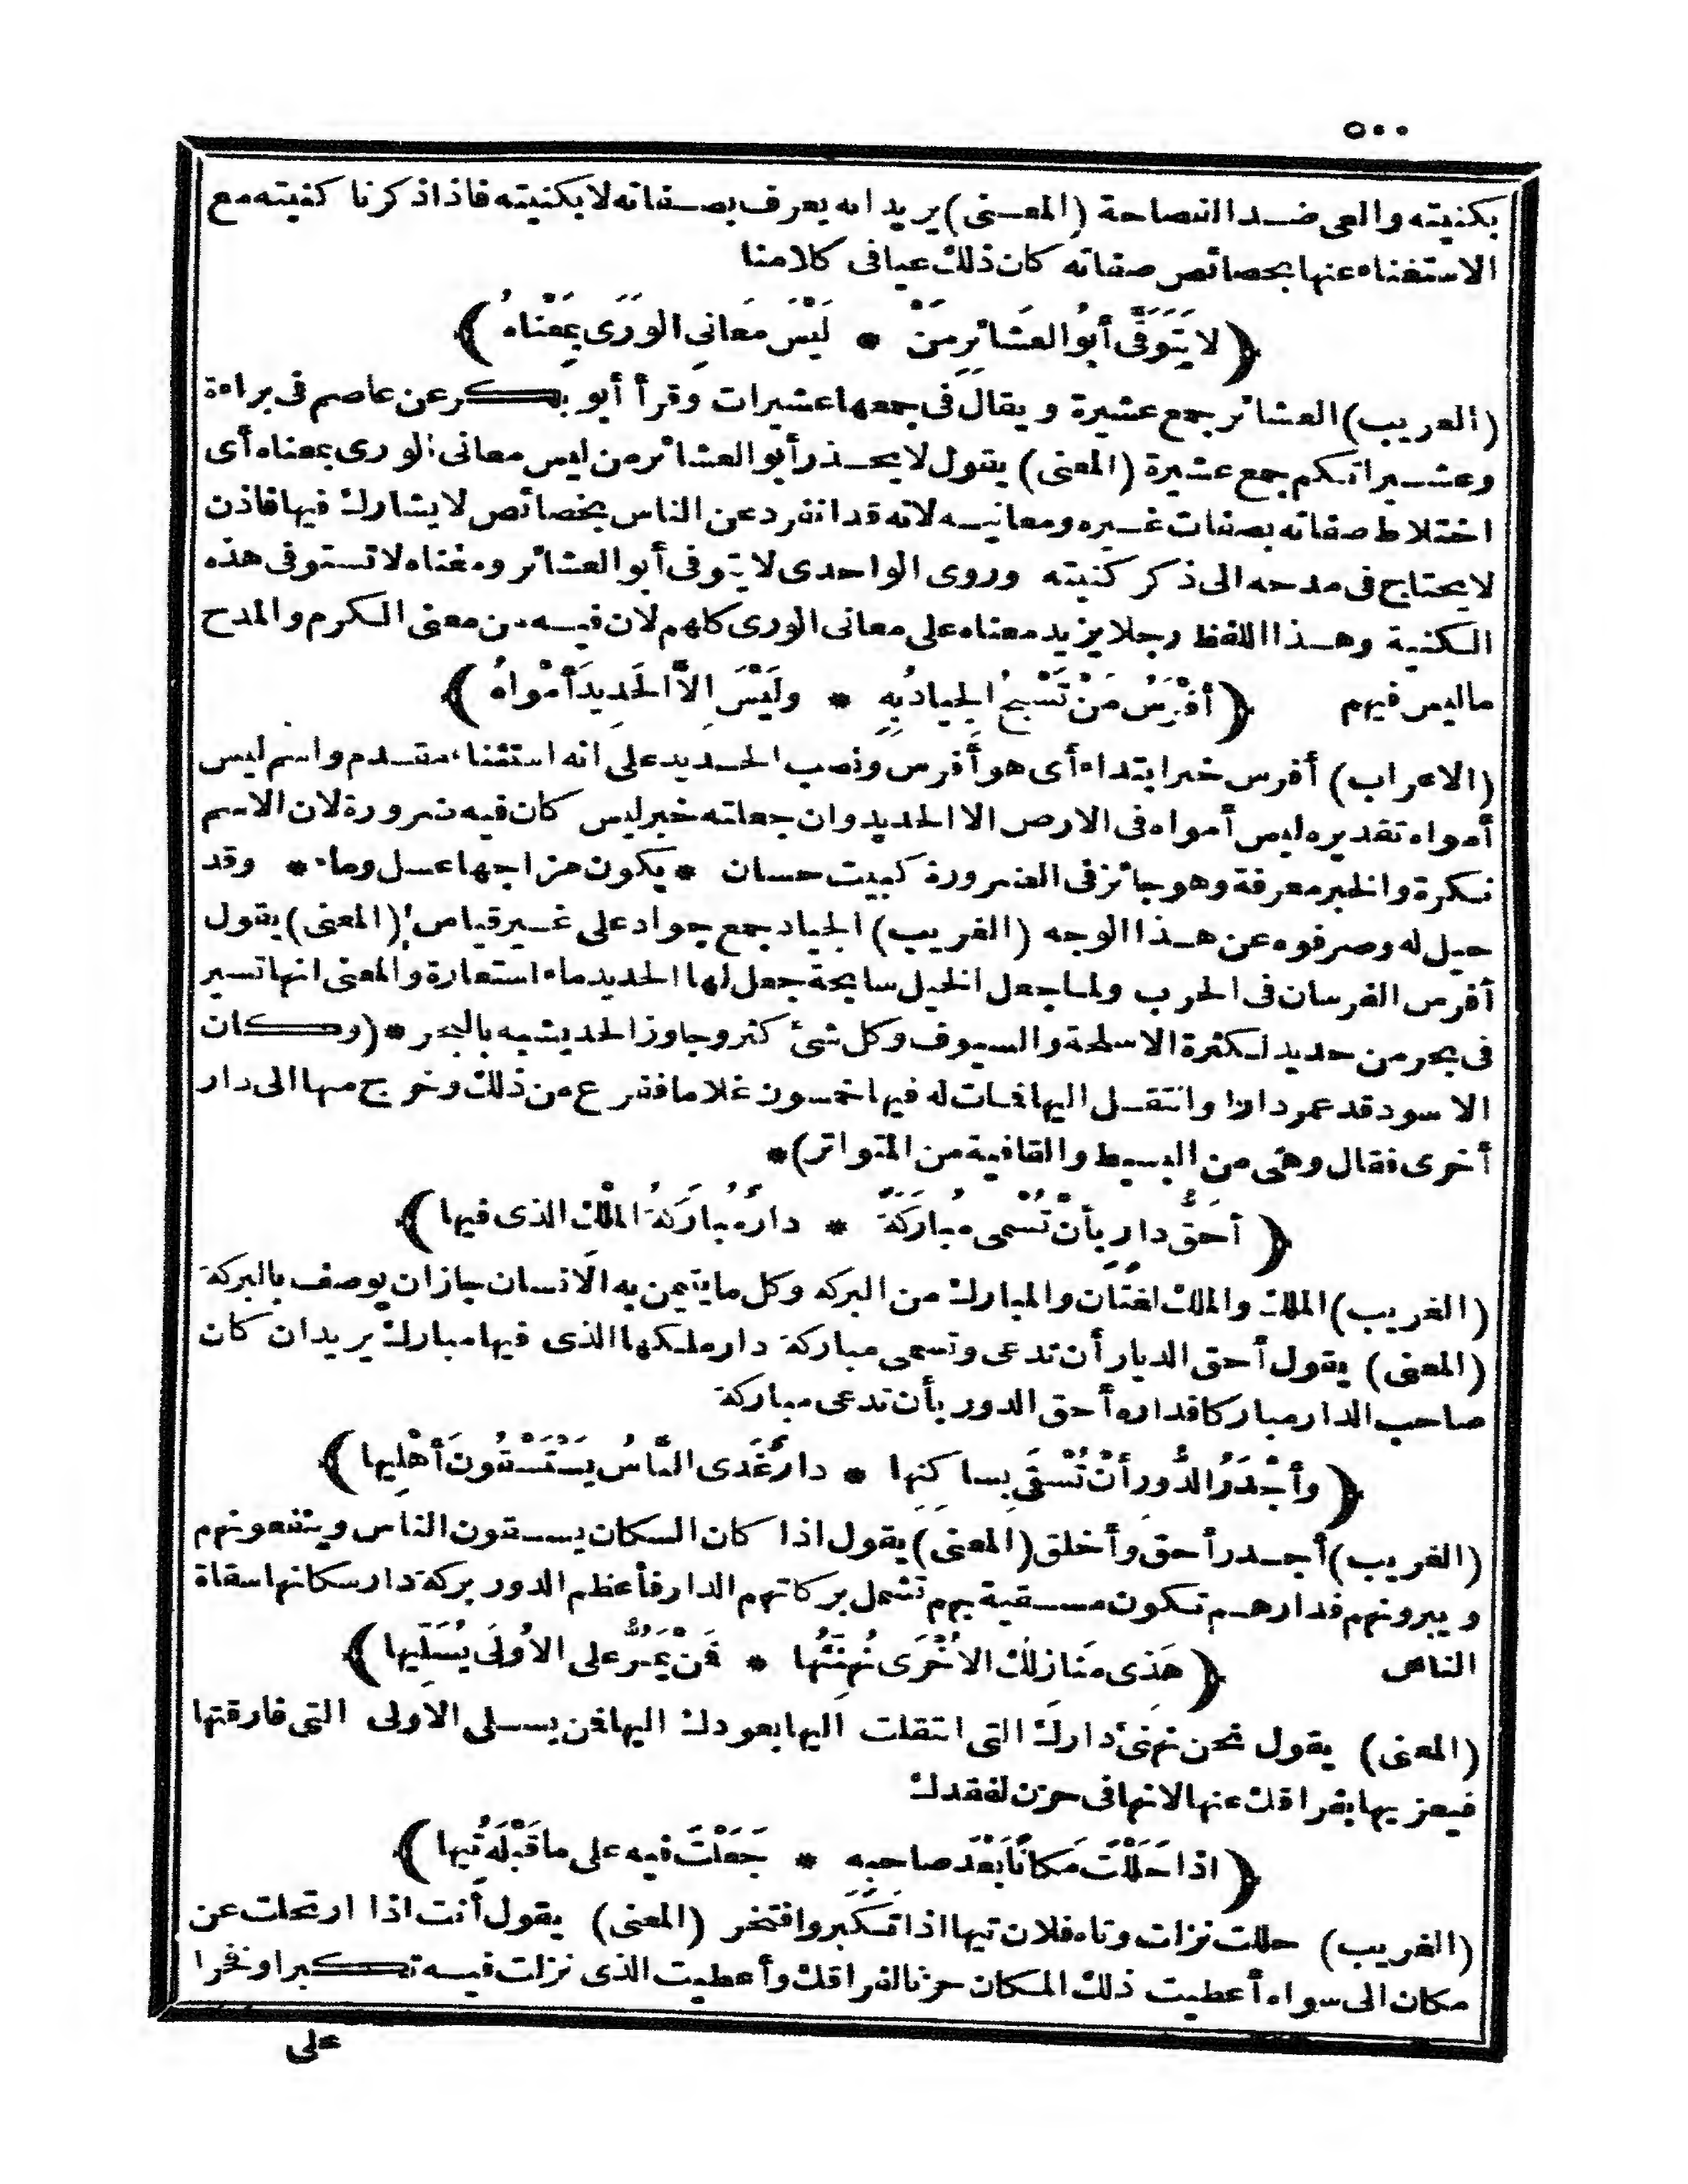 ٥٠٠
بكنيته والعى ضد الفصاحة (المعنى) يريد انه يعرف بصفاته لا بكنيته فاذا ذكرنا كنيته مع
الاستغناء عنها بخصائص صفاته كان ذلك عيا فى كلامنا
﴿لا يَتَوَقَّى أبُو العَشائِرِ مِنْ * لَيْسَ مَعانِى الوَرَى بِمَعْناهُ﴾
(الغريب) العشائر جمع عشيرة ويقال فى جمعها عشيرات وقرأ أبو بكر عن عاصم فى براءة
وعشيراتكم جمع عشيرة (المعنى) يقول لا يحذر أبو العشائر من ليس معانى الورى بمعناه أى
اختلاط صفاته بصفات غيره ومعانيه لانه قد انفرد عن الناس بخصائص لا يشارك فيها فاذن
لا يحتاج فى مدحه الى ذكر كنيته وروى الواحدى لا يتوفى أبو العشائر ومغناه لا تستوفى هذه
الكنية وهذا اللفظ رجلا يزيد معناه على معانى الورى كلهم لان فيه من معنى الكرم والمدح
ما ليس فيهم ﴿أفْرَسُ مَنْ تَسْبَحُ الجِيادُ بِهِ * ولَيْسَ إلاَّ الحَدِيدَ أمْواهُ﴾
(الاعراب) أفرس خبر ابتداء أى هو أفرس ونصب الحديد على انه استثناء مقدم واسم ليس
أمواه تقديره ليس أمواه فى الارض الا الحديد وان جعلته خبر ليس كان فيه ضرورة لان الاسم
نكرة والخبر معرفة وهو جائز فى الضرورة كبيت حسان * يكون مزاجها عسل وماء * وقد
حيل له وصرفوه عن هذا الوجه (الغريب) الجياد جمع جواد على غير قياس (المعنى) يقول
أفرس الفرسان فى الحرب ولما جعل الخيل سابحة جعل لها الحديد ماء استعارة والمعنى انها تسير
فى بحر من حديد لكثرة الاسلحة والسيوف وكل شئ كثر وجاوز الحد يشبه بالبحر * (وكان
الاسود قد عمر دارا وانتقل اليها فمات له فيها خمسون غلاما ففزع من ذلك وخرج منها الى دار
أخرى فقال وهى من البسيط والقافية من المتواتر) *
﴿أحَقُّ دارٍ بأنْ تُسْمى مُبارَكَةً * دارٌ مُبارَكَةُ المَلْكِ الذى فيها﴾
(الغريب) الملك والملك لغتان والمبارك من البركه وكل ما يتيمن به الانسان جاز ان يوصف بالبركة
(المعنى) يقول أحق الديار أن تدعى وتسمى مباركة دار ملكها الذى فيها مبارك يريد ان كان
صاحب الدار مباركا فداره أحق الدور بأن تدعى مباركة
﴿وأجْدَرُ الدُّورِ أنْ تُسْقَى بِساكِنِها * دارٌ غَدَى النَّاسُ يَسْتَسْقُونَ أهْلِيها﴾
(الغريب) أجدر أحق وأخلق (المعنى) يقول اذا كان السكان يستقون الناس وينفعونهم
ويبرونهم فدارهم تكون مستقية بهم تشمل بركاتهم الدار فأعظم الدور بركة دار سكانها سقاة
الناس ﴿هَذِى مَنَازِلُكَ الأُخْرَى نُهَنِّئُها * فَمَنْ يَمُرُّ على الأُولَى يُسَلِّيها﴾
(المعنى) يقول نحن نهنئ دارك التى انتقلت اليها بعودك اليها فمن يسلى الاولى التى فارقتها
فيعزيها بفراقك عنها لانها فى حزن لفقدك
﴿اذا حَلَلْتَ مَكاناً بَعْدَ صاحِبِهِ * جَعَلْتَ فيهِ على ما قَبْلَهُ تِيها﴾
(الغريب) حللت نزلت وتاه فلان تيها اذا تكبر وافتخر (المعنى) يقول أنت اذا ارتحلت عن
مكان الى سواه أعطيت ذلك المكان حزنا لفراقك وأعطيت الذى نزلت فيه تكبرا ونفخرا
على